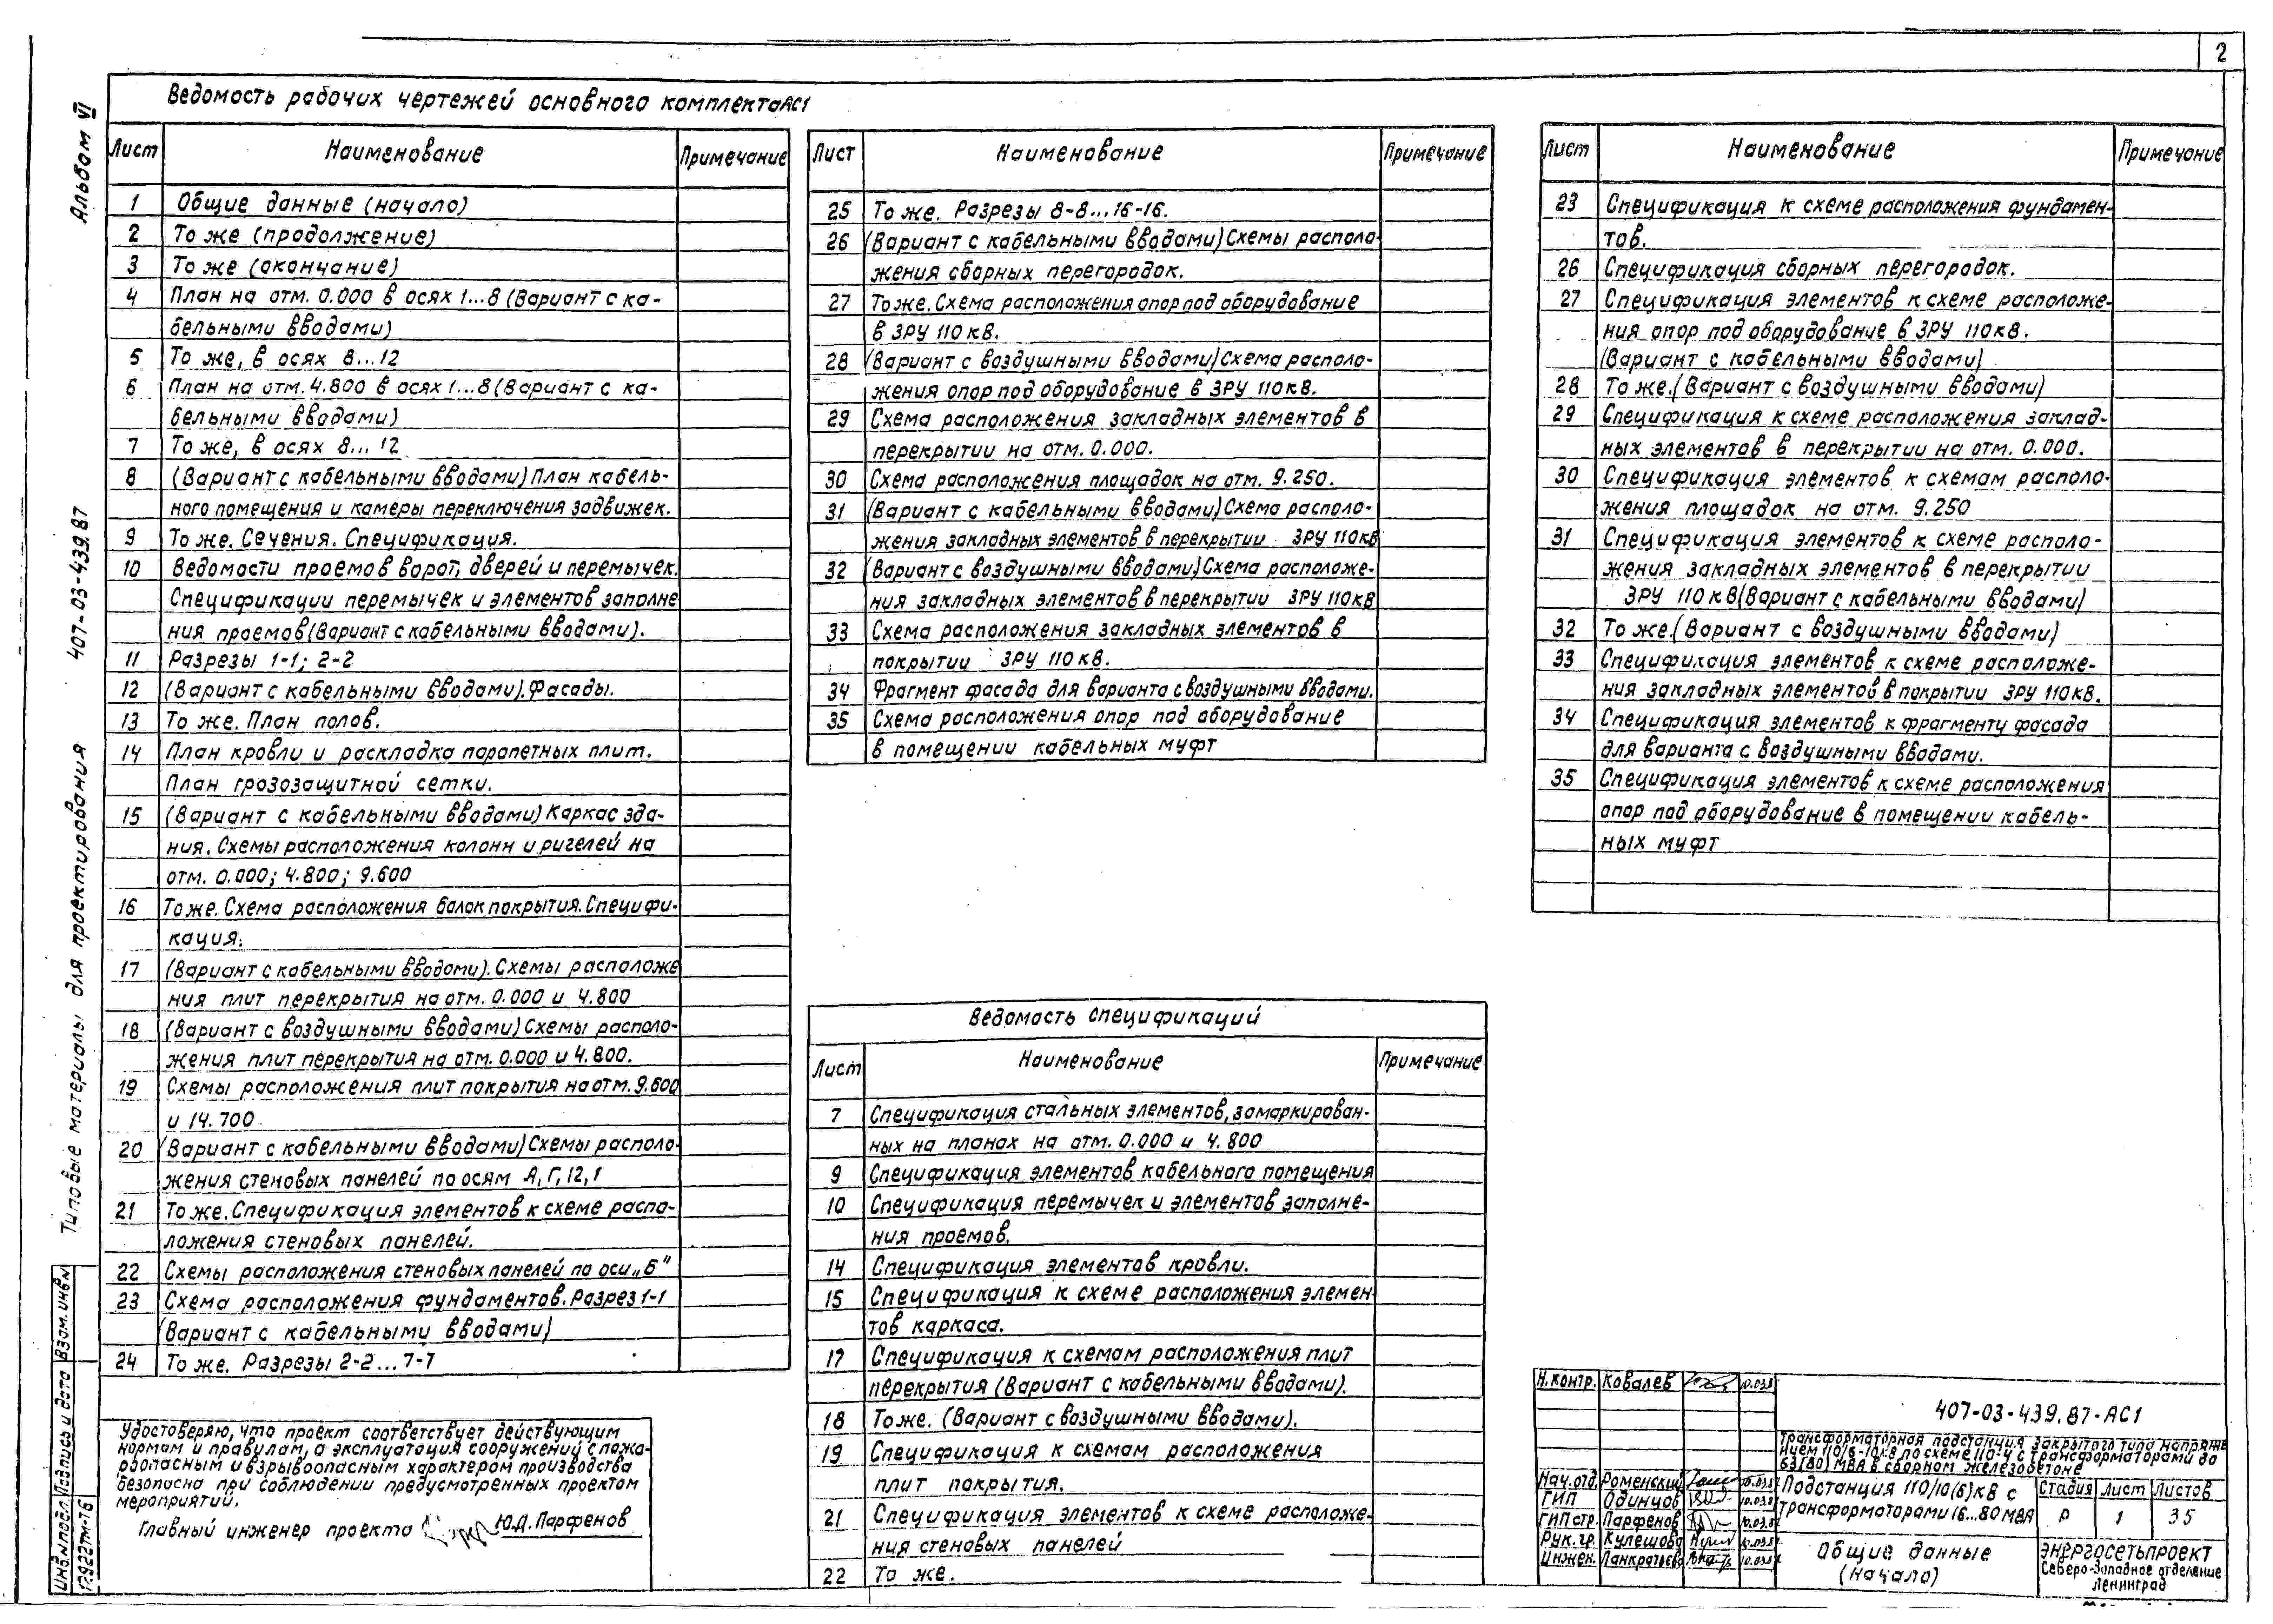 2
Альбом VI
407-03-439.87
Типовые материалы для проектирования
Ведомость рабочих чертежей основного комплекта АС1
Лист Наименование Примечание
1 Общие данные (начало)
2 То же (продолжение)
3 То же (окончание)
4 План на отм. 0.000 в осях 1...8 (Вариант с ка-
бельными вводами)
5 То же, в осях 8...12
6 План на отм. 4.800 в осях 1...8 (Вариант с ка-
бельными вводами)
7 То же, в осях 8...12
8 (Вариант с кабельными вводами) План кабель-
ного помещения и камеры переключения задвижек.
9 То же. Сечения. Спецификация.
10 Ведомости проемов ворот, дверей и перемычек.
Спецификации перемычек и элементов заполне
ния проемов (Вариант с кабельными вводами).
11 Разрезы 1-1; 2-2
12 (Вариант с кабельными вводами). Фасады.
13 То же. План полов.
14 План кровли и раскладка парапетных плит.
План грозозащитной сетки.
15 (Вариант с кабельными вводами) Каркас зда-
ния. Схемы расположения колонн и ригелей на
отм. 0.000; 4.800; 9.600
16 То же. Схема расположения балок покрытия. Специфи-
кация.
17 (Вариант с кабельными вводами). Схемы расположе
ния плит перекрытия на отм. 0.000 и 4.800
18 (Вариант с воздушными вводами) Схемы располо-
жения плит перекрытия на отм. 0.000 и 4.800.
19 Схемы расположения плит покрытия на отм. 9.600
и 14.700
20 (Вариант с кабельными вводами) Схемы располо-
жения стеновых панелей по осям А, Г, 12, 1
21 То же. Спецификация элементов к схеме распо-
ложения стеновых панелей.
22 Схемы расположения стеновых панелей по оси „Б"
23 Схема расположения фундаментов. Разрез 1-1
(Вариант с кабельными вводами)
24 То же. Разрезы 2-2...7-7
Удостоверяю, что проект соответствует действующим
нормам и правилам, а эксплуатация сооружений с пожа-
роопасным и взрывоопасным характером производства
безопасна при соблюдении предусмотренных проектом
мероприятий.
Главный инженер проекта Ю.Д. Парфенов
Лист Наименование Примечание
25 То же. Разрезы 8-8...16-16.
26 (Вариант с кабельными вводами) Схемы располо-
жения сборных перегородок.
27 То же. Схема расположения опор под оборудование
в ЗРУ 110 кВ.
28 (Вариант с воздушными вводами) Схема располо-
жения опор под оборудование в ЗРУ 110кВ.
29 Схема расположения закладных элементов в
перекрытии на отм. 0.000.
30 Схема расположения площадок на отм. 9.250.
31 (Вариант с кабельными вводами) Схема располо-
жения закладных элементов в перекрытии ЗРУ 110кВ
32 (Вариант с воздушными вводами) Схема расположе-
ния закладных элементов в перекрытии ЗРУ 110кВ
33 Схема расположения закладных элементов в
покрытии ЗРУ 110 кВ.
34 Фрагмент фасада для варианта с воздушными вводами.
35 Схема расположения опор под оборудование
в помещении кабельных муфт
Ведомость спецификаций
Лист Наименование Примечание
7 Спецификация стальных элементов, замаркирован-
ных на планах на отм. 0.000 и 4.800
9 Спецификация элементов кабельного помещения
10 Спецификация перемычек и элементов заполне-
ния проемов.
14 Спецификация элементов кровли.
15 Спецификация к схеме расположения элемен
тов каркаса.
17 Спецификация к схемам расположения плит
перекрытия (Вариант с кабельными вводами).
18 То же. (Вариант с воздушными вводами).
19 Спецификация к схемам расположения
плит покрытия.
21 Спецификация элементов к схеме расположе-
ния стеновых панелей
22 То же.
Лист Наименование Примечание
23 Спецификация к схеме расположения фундамен-
тов.
26 Спецификация сборных перегородок.
27 Спецификация элементов к схеме расположе-
ния опор под оборудование в ЗРУ 110кВ.
(Вариант с кабельными вводами)
28 То же. (Вариант с воздушными вводами)
29 Спецификация к схеме расположения заклад-
ных элементов в перекрытии на отм. 0.000.
30 Спецификация элементов к схемам располо-
жения площадок на отм. 9.250
31 Спецификация элементов к схеме располо-
жения закладных элементов в перекрытии
ЗРУ 110 кВ (Вариант с кабельными вводами)
32 То же. (Вариант с воздушными вводами)
33 Спецификация элементов к схеме расположе-
ния закладных элементов в покрытии ЗРУ 110кВ.
34 Спецификация элементов к фрагменту фасада
для варианта с воздушными вводами.
35 Спецификация элементов к схеме расположения
опор под оборудование в помещении кабель-
ных муфт
Н. контр. Ковалев
407-03-439.87-АС1
Трансформаторная подстанция закрытого типа напряже
нием 110/6-10кВ по схеме 110-4 с трансформаторами до
63(80) МВА в сборном железобетоне
Нач. отд. Роменский
ГИП Одинцов
ГИП стр. Парфенов
Рук. гр. Кулешова
Инжен. Панкратьева
Подстанция 110/10(6)кВ с
трансформаторами 16...80 МВА
Стадия Лист Листов
Р 1 35
Общие данные
(начало)
ЭНЕРГОСЕТЬПРОЕКТ
Северо-Западное отделение
Ленинград
Взам. инв. №
Подпись и дата
Инв. № подл.
17922тм-т6